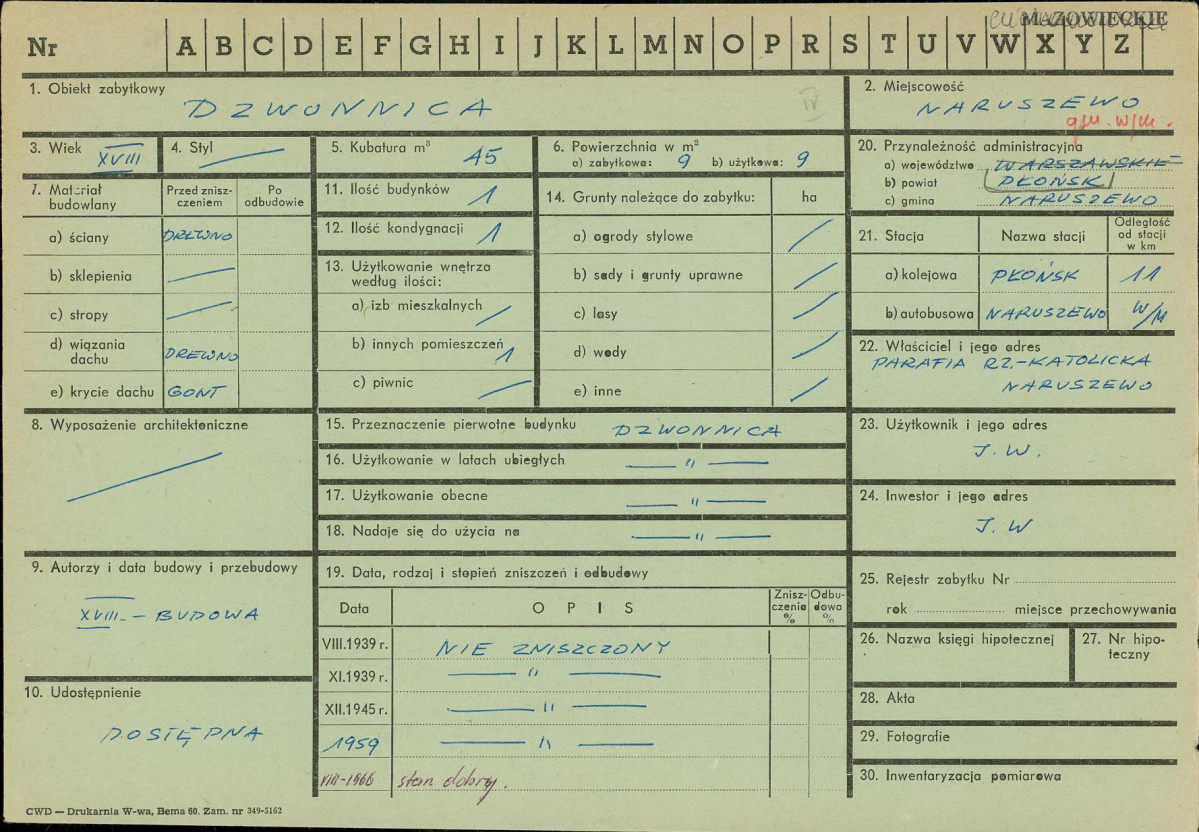 MAZOWIECKIE
Nr A B C D E F G H I J K L M N O P R S T U V W X Y Z
1. Obiekt zabytkowy
DZWONNICA
IV
2. Miejscowość
NARUSZEWO
gm. w/m.
3. Wiek XVIII
4. Styl —
5. Kubatura m³ 45
6. Powierzchnia w m²
a) zabytkowa: 9 b) użytkowa: 9
20. Przynależność administracyjna
a) województwo WARSZAWSKIE
b) powiat PŁOŃSK
c) gmina NARUSZEWO
7. Materiał budowlany
Przed znisz-
czeniem
Po
odbudowie
a) ściany DREWNO
b) sklepienia —
c) stropy —
d) wiązania
dachu DREWNO
e) krycie dachu GONT
11. Ilość budynków 1
12. Ilość kondygnacji 1
13. Użytkowanie wnętrza
według ilości:
a) izb mieszkalnych /
b) innych pomieszczeń 1
c) piwnic —
14. Grunty należące do zabytku: ha
a) ogrody stylowe /
b) sady i grunty uprawne /
c) lasy /
d) wody /
e) inne /
21. Stacja Nazwa stacji
Odległość
od stacji
w km
a) kolejowa PŁOŃSK 11
b) autobusowa NARUSZEWO W/M
22. Właściciel i jego adres
PARAFIA RZ.-KATOLICKA
NARUSZEWO
8. Wyposażenie architektoniczne
—
15. Przeznaczenie pierwotne budynku DZWONNICA
16. Użytkowanie w latach ubiegłych — " —
17. Użytkowanie obecne — " —
18. Nadaje się do użycia na — " —
23. Użytkownik i jego adres
J.W.
24. Inwestor i jego adres
J.W
9. Autorzy i data budowy i przebudowy
XVIII - BUDOWA
10. Udostępnienie
DOSTĘPNA
19. Data, rodzaj i stopień zniszczeń i odbudowy
Data OPIS
Znisz-
czenia
%
Odbu-
dowa
%
VIII.1939 r. NIE ZNISZCZONY
XI.1939 r. — " —
XII.1945 r. — " —
1959 — " —
VIII-1966 stan dobry.
25. Rejestr zabytku Nr
rok miejsce przechowywania
26. Nazwa księgi hipotecznej
27. Nr hipo-
teczny
28. Akta
29. Fotografie
30. Inwentaryzacja pomiarowa
CWD — Drukarnia W-wa, Bema 60. Zam. nr 349-5162